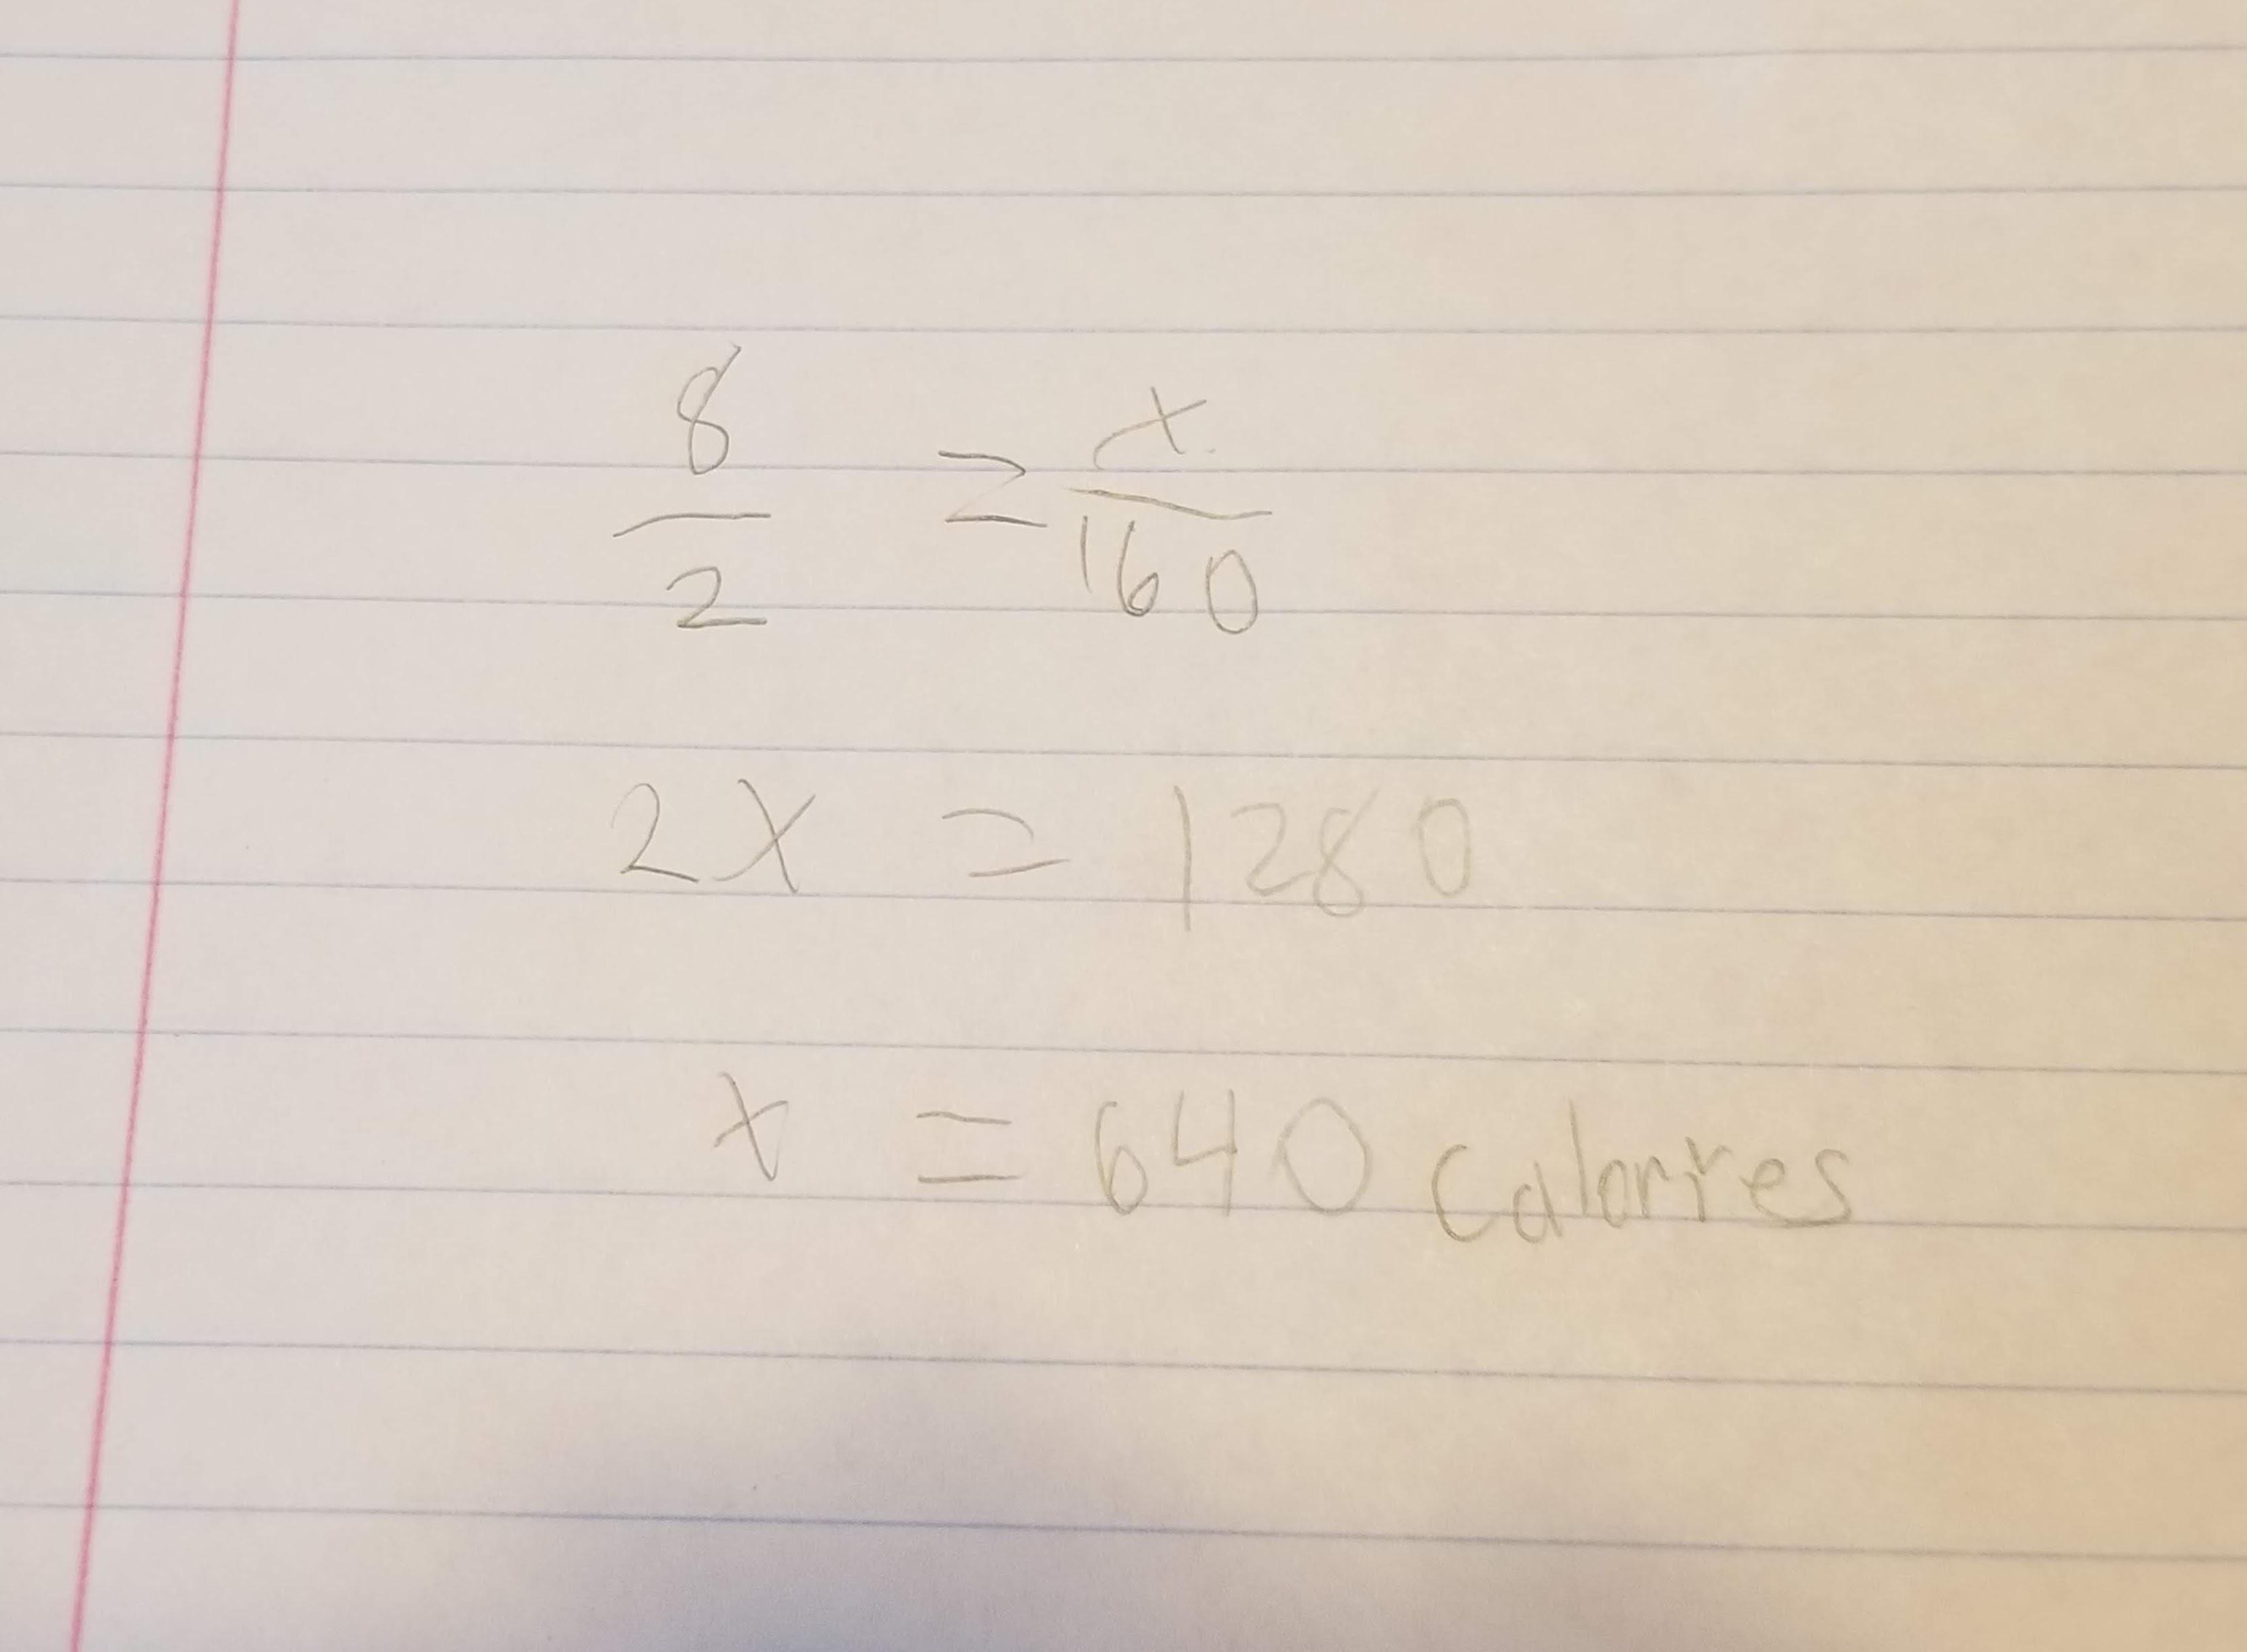 8/2 = x/160
2x = 1280
x = 640 calories